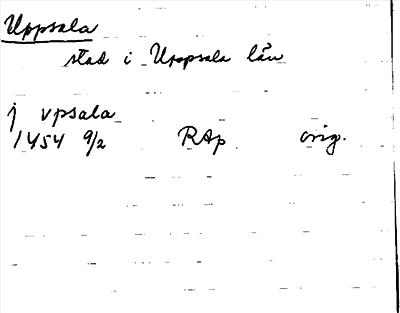 Uppsala
stad i Uppsala län
j vpsala
1454 9/2 RAp orig.